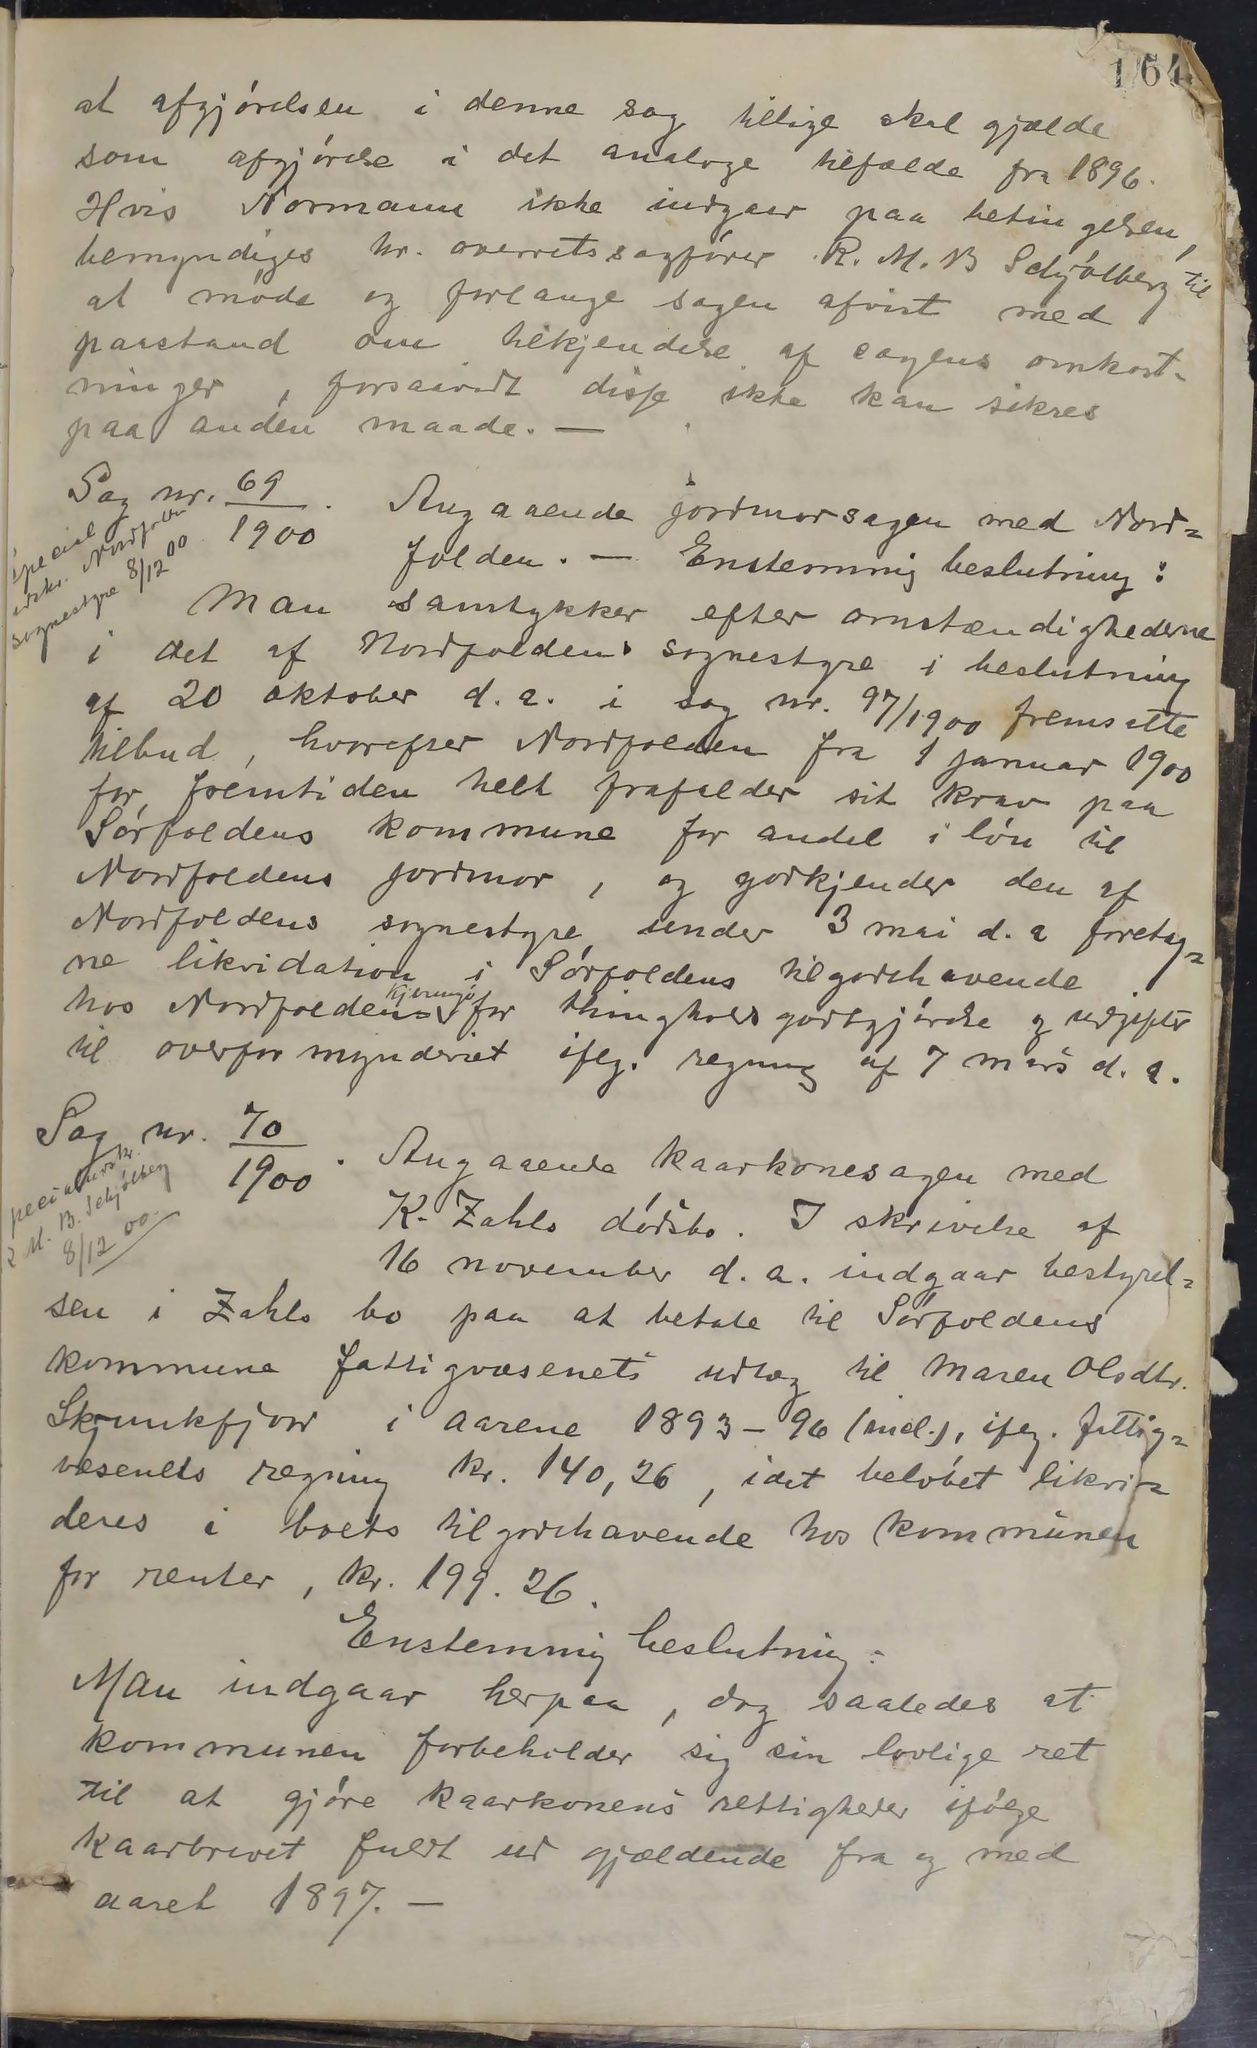 164
at afgjórelsen i denne sag tillige skal gjælde
som afgjórelse i det analoge tilfælde fra 1896.
Hvis Normann ikke indgaar paa betingelsen,
bemyndiges hr. overretssagfórer R. M. B Schjölberg til
at möde og forlange sagen afvist med
paastand om tilkjendelse af sagens omkost-
ninger, forsaavidt disse ikke kan sikres
paa anden maade. —
Sag nr. 69/1900. Angaaende jordmorsagen med Nord=
folden. — Enstemmig beslutning:
special
udskr. Nordfolden
sognestyre 8/12 00
Man samtykker efter omstændighederne
i det af Nordfoldens sognestyre i beslutning
af 20 oktober d. a. i sag nr. 97/1900 fremsatte
tilbud, hvorefter Nordfolden fra 1 januar 1900
for fremtiden helt frafalder sit krav paa
Sórfoldens kommune for andel i lón til
Nordfoldens jordmor, og godkjender den af
Nordfoldens sognestyre under 3 mai d. a foretag=
ne likvidation i Sórfoldens tilgodehavende
hos Nordfolden-Kjeringó for thingholdsgodtgjórelse og udgifter
til overformynderiet iflg. regning af 7 mars d. a.
Sag nr. 70/1900. Angaaende kaarkonesagen med
K. Zahls dódsbo. I skrivelse af
16 november d. a. indgaar bestyrel=
specialudskr.
R M. B. Schjölberg
8/12 00.
sen i Zahls bo paa at betale til Sórfoldens
kommune fattigvæsenets udlæg til Maren Olsdtr.
Skjunkfjord i aarene 1893-96 (incl.), iflg. fattig=
væsenets regning kr. 140,26, idet belóbet likvi=
deres i boets tilgodehavende hos kommunen
for renter, kr. 199.26.
Enstemmig beslutning:
Man indgaar herpaa, dog saaledes at
kommunen forbeholder sig sin lovlige ret
til at gjóre kaarkonens rettigheder ifólge
kaarbrevet fuldt ud gjældende fra og med
aaret 1897. —